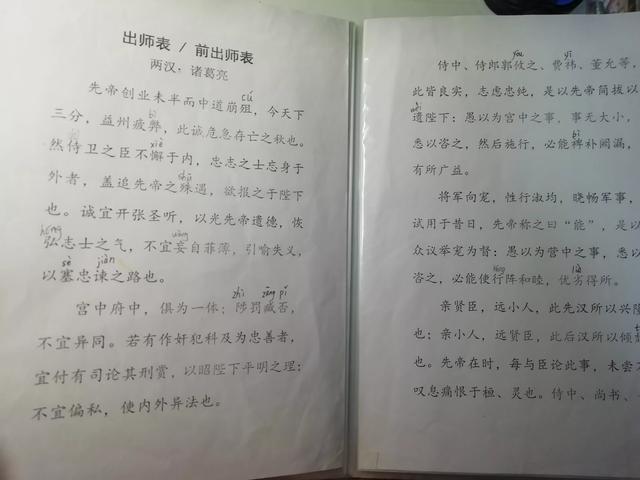 出师表 / 前出师表
两汉：诸葛亮
cú
先帝创业未半而中道崩殂，今天下
bì
三分，益州疲弊，此诚危急存亡之秋也。
xiè
然侍卫之臣不懈于内，忠志之士忘身于
shū
外者，盖追先帝之殊遇，欲报之于陛下
也。诚宜开张圣听，以光先帝遗德，恢
hóng wàng
弘志士之气，不宜妄自菲薄，引喻失义，
sè jiàn
以塞忠谏之路也。
zhì zāng pǐ
宫中府中，俱为一体；陟罚臧否，
不宜异同。若有作奸犯科及为忠善者，
宜付有司论其刑赏，以昭陛下平明之理；
不宜偏私，使内外异法也。
yōu yī
侍中、侍郎郭攸之、费祎、董允等，
此皆良实，志虑忠纯，是以先帝简拔以
wèi
遗陛下：愚以为宫中之事，事无大小，
bì
悉以咨之，然后施行，必能裨补阙漏，
有所广益。
将军向宠，性行淑均，晓畅军事，
试用于昔日，先帝称之曰“能”，是以
众议举宠为督：愚以为营中之事，悉以
háng liè
咨之，必能使行阵和睦，优劣得所。
亲贤臣，远小人，此先汉所以兴隆
也；亲小人，远贤臣，此后汉所以倾
也。先帝在时，每与臣论此事，未尝
叹息痛恨于桓、灵也。侍中、尚书、